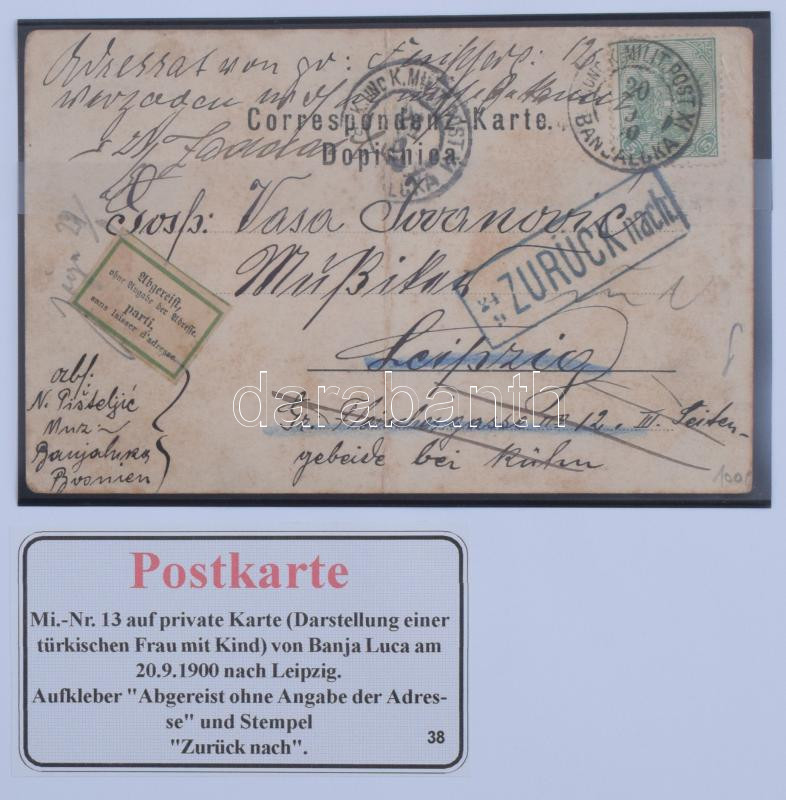 Adressat von gr: Fleischerg. 12
verzogen
Correspondenz-Karte.
Dopisnica.
K. UND K. MILIT. POST XI
BANJALUKA
20
9
Gosp: Vasa Jovanovic
Mußiker
ZURÜCK nach
Leipzig
12. III. Seiten-
gebeide bei Kühn
Abgereist,
ohne Angabe der Adresse.
parti,
sans laisser d'adresse.
abs:
N. Pišteljić
Muz
Banjaluka
Bosnien
100
darabanth
Postkarte
Mi.-Nr. 13 auf private Karte (Darstellung einer
türkischen Frau mit Kind) von Banja Luca am
20.9.1900 nach Leipzig.
Aufkleber "Abgereist ohne Angabe der Adres-
se" und Stempel
"Zurück nach".
38